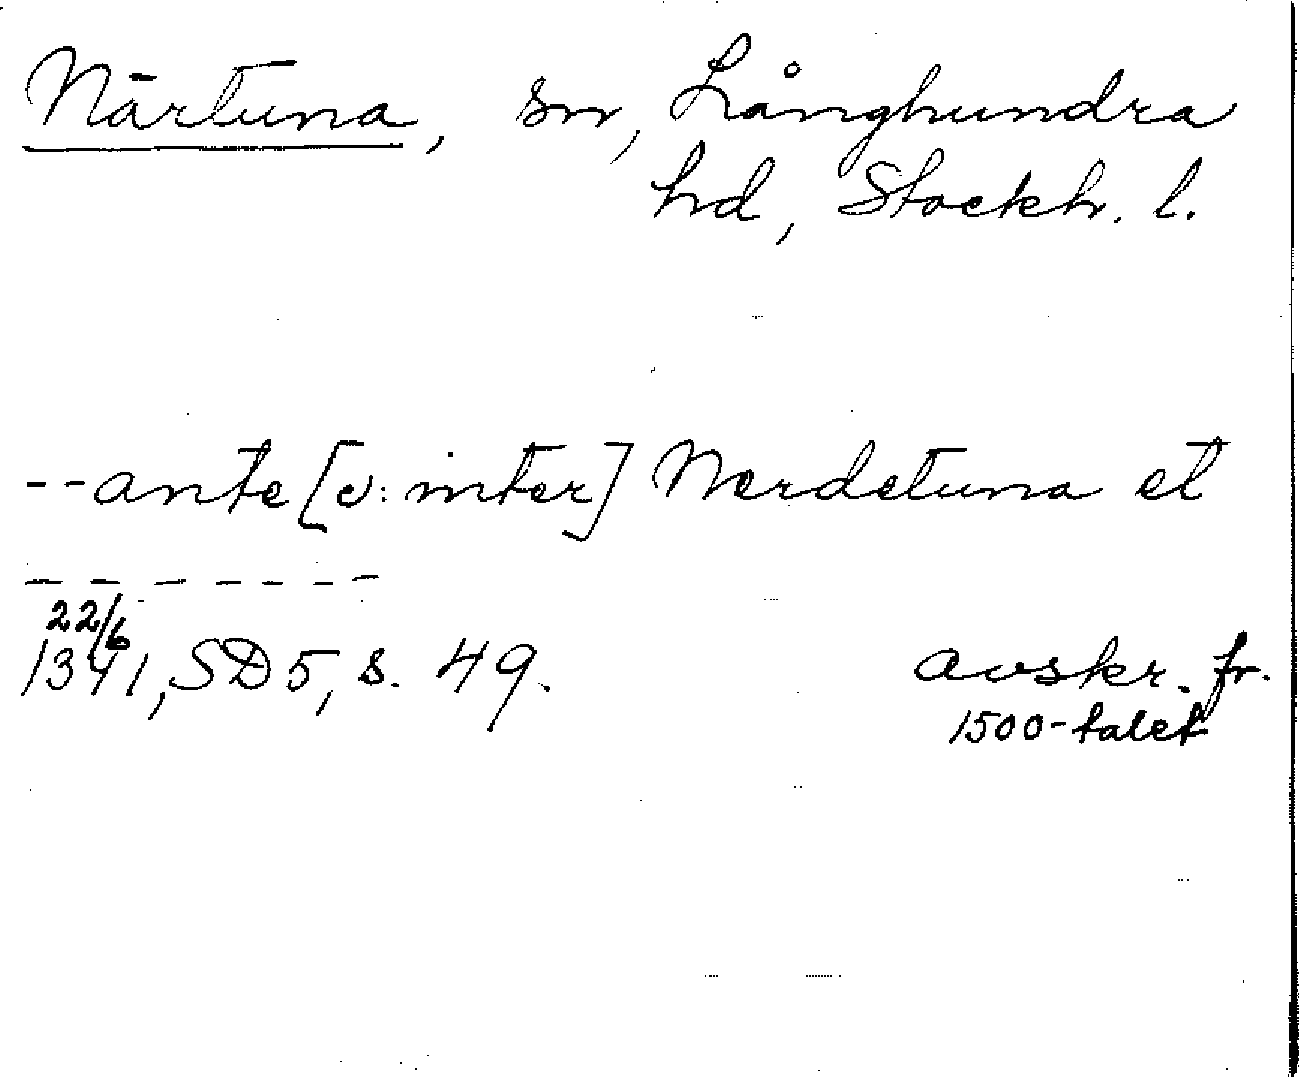 Närtuna, sn, Långhundra
hd, Stockh. l.
--ante [ɔ: inter] Nerdetuna et
- - - - - - -
22/6
1341, SD 5, s. 49. avskr. fr.
1500-talet